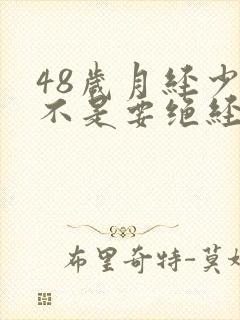 48歲月經少
不是要绝经
布里奇特-莫